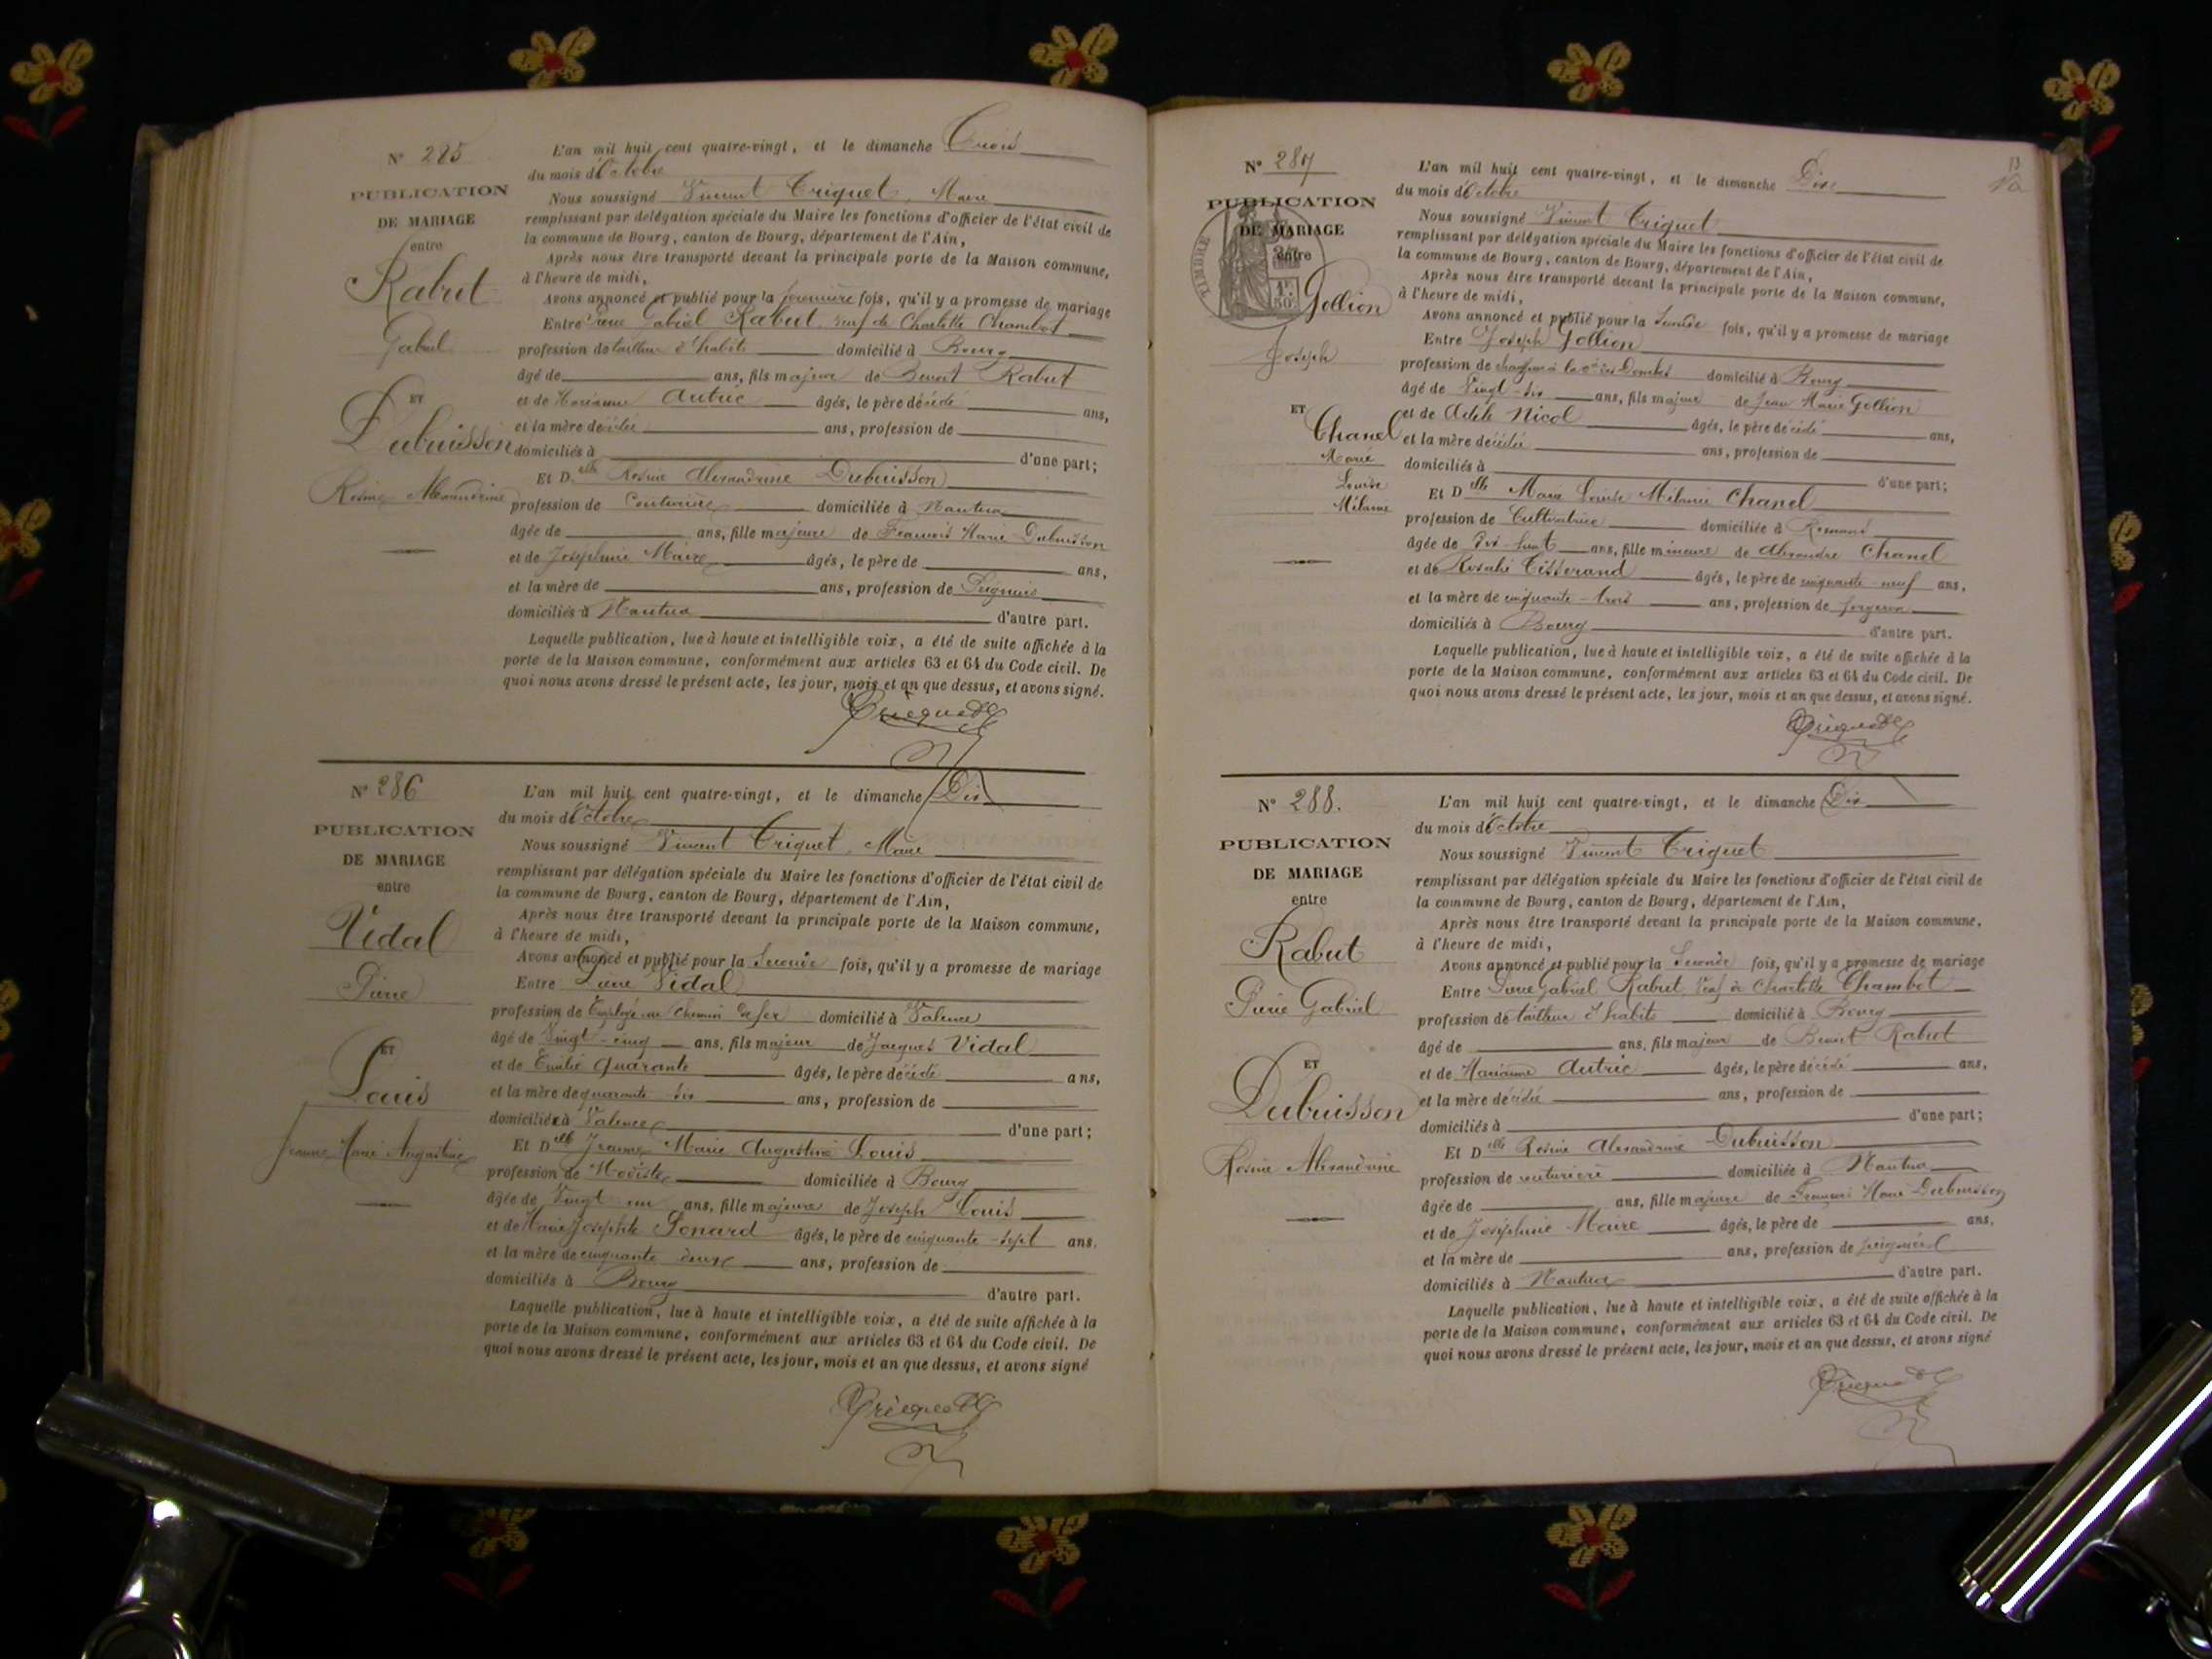 N° 285
PUBLICATION
DE MARIAGE
entre
Rabut
Gabriel
ET
Dubuisson
Rosine Alexandrine
L'an mil huit cent quatre-vingt, et le dimanche Trois
du mois d'Octobre
Nous soussigné Vincent Triquet, Maire
remplissant par délégation spéciale du Maire les fonctions d'officier de l'état civil de
la commune de Bourg, canton de Bourg, département de l'Ain,
Après nous être transporté devant la principale porte de la Maison commune,
à l'heure de midi,
Avons annoncé et publié pour la première fois, qu'il y a promesse de mariage
Entre Pierre Gabriel Rabut, veuf de Charlotte Chambot
profession de tailleur d'habits domicilié à Bourg
âgé de ans, fils majeur de Benoit Rabut
et de Marianne Autric âgés, le père décédé ans,
et la mère décédée ans, profession de
domiciliés à d'une part;
Et D elle Rosine Alexandrine Dubuisson
profession de Couturière domiciliée à Nantua
âgée de ans, fille majeure de François Marie Dubuisson
et de Joséphine Maire âgés, le père de ans,
et la mère de ans, profession de
domiciliés à Nantua d'autre part.
Laquelle publication, lue à haute et intelligible voix, a été de suite affichée à la
porte de la Maison commune, conformément aux articles 63 et 64 du Code civil. De
quoi nous avons dressé le présent acte, les jour, mois et an que dessus, et avons signé.
Triquet
N° 286
PUBLICATION
DE MARIAGE
entre
Vidal
Pierre
ET
Louis
Jeanne Marie Augustine
L'an mil huit cent quatre-vingt, et le dimanche Dix
du mois d'Octobre
Nous soussigné Vincent Triquet, Maire
remplissant par délégation spéciale du Maire les fonctions d'officier de l'état civil de
la commune de Bourg, canton de Bourg, département de l'Ain,
Après nous être transporté devant la principale porte de la Maison commune,
à l'heure de midi,
Avons annoncé et publié pour la Seconde fois, qu'il y a promesse de mariage
Entre Pierre Vidal
profession de Employé au Chemin de fer domicilié à Valence
âgé de Vingt-cinq ans, fils majeur de Jacques Vidal
et de Emilie Quarante âgés, le père décédé ans,
et la mère de quarante six ans, profession de
domiciliée à Valence d'une part;
Et D elle Jeanne Marie Augustine Louis
profession de Modiste domiciliée à Bourg
âgée de Vingt un ans, fille majeure de Joseph Louis
et de Marie Josephte Ponard âgés, le père de cinquante-sept ans,
et la mère de cinquante deux ans, profession de
domiciliés à Bourg d'autre part.
Laquelle publication, lue à haute et intelligible voix, a été de suite affichée à la
porte de la Maison commune, conformément aux articles 63 et 64 du Code civil. De
quoi nous avons dressé le présent acte, les jour, mois et an que dessus, et avons signé
Triquet
N° 287
PUBLICATION
DE MARIAGE
entre
TIMBRE
1F
50c
Gollion
Joseph
ET
Chanel
Marie
Louise
Mélanie
L'an mil huit cent quatre-vingt, et le dimanche Dix
du mois d'Octobre
Nous soussigné Vincent Triquet
remplissant par délégation spéciale du Maire les fonctions d'officier de l'état civil de
la commune de Bourg, canton de Bourg, département de l'Ain,
Après nous être transporté devant la principale porte de la Maison commune,
à l'heure de midi,
Avons annoncé et publié pour la Seconde fois, qu'il y a promesse de mariage
Entre Joseph Gollion
profession de chauffeur à la Cie des Dombes domicilié à Bourg
âgé de Vingt-six ans, fils majeur de Jean Marie Gollion
et de Adèle Nicol âgés, le père décédé ans,
et la mère décédée ans, profession de
domiciliés à d'une part;
Et D elle Marie Louise Mélanie Chanel
profession de Cultivatrice domiciliée à Romans
âgée de Dix-huit ans, fille mineure de Alexandre Chanel
et de Rosalie Tisserand âgés, le père de cinquante-neuf ans,
et la mère de cinquante-trois ans, profession de forgeron
domiciliés à Bourg d'autre part.
Laquelle publication, lue à haute et intelligible voix, a été de suite affichée à la
porte de la Maison commune, conformément aux articles 63 et 64 du Code civil. De
quoi nous avons dressé le présent acte, les jour, mois et an que dessus, et avons signé.
Triquet
N° 288.
PUBLICATION
DE MARIAGE
entre
Rabut
Pierre Gabriel
ET
Dubuisson
Rosine Alexandrine
L'an mil huit cent quatre-vingt, et le dimanche Dix
du mois d'Octobre
Nous soussigné Vincent Triquet
remplissant par délégation spéciale du Maire les fonctions d'officier de l'état civil de
la commune de Bourg, canton de Bourg, département de l'Ain,
Après nous être transporté devant la principale porte de la Maison commune,
à l'heure de midi,
Avons annoncé et publié pour la Seconde fois, qu'il y a promesse de mariage
Entre Pierre Gabriel Rabut, Veuf de Charlotte Chambot
profession de tailleur d'habits domicilié à Bourg
âgé de ans, fils majeur de Benoit Rabut
et de Marianne Autric âgés, le père décédé ans,
et la mère décédée ans, profession de
domiciliés à d'une part;
Et D elle Rosine Alexandrine Dubuisson
profession de couturière domiciliée à Nantua
âgée de ans, fille majeure de François Marie Dubuisson
et de Joséphine Maire âgés, le père de ans,
et la mère de ans, profession de
domiciliés à Nantua d'autre part.
Laquelle publication, lue à haute et intelligible voix, a été de suite affichée à la
porte de la Maison commune, conformément aux articles 63 et 64 du Code civil. De
quoi nous avons dressé le présent acte, les jour, mois et an que dessus, et avons signé
Triquet